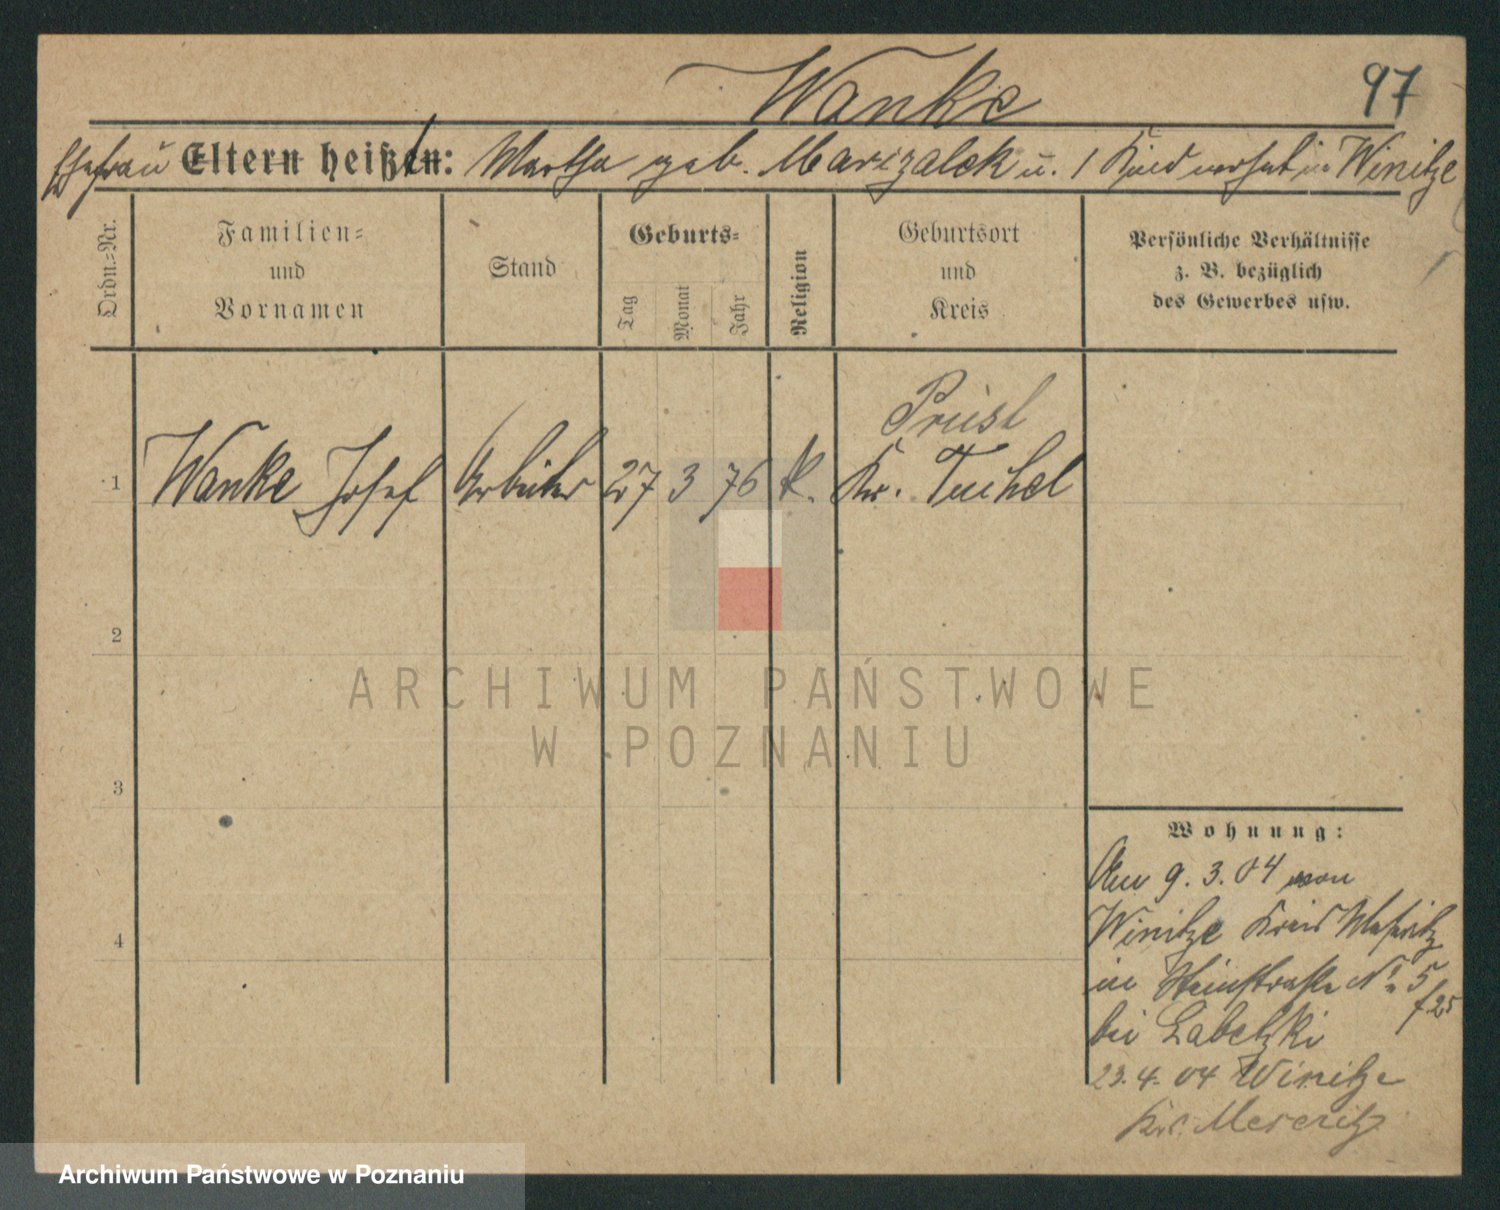 Wanke
97
Ehefrau Eltern heißen: Martha geb. Marczalek u. 1 Kind wohnt in Winitze
Ordn.-Nr.
Familien-
und
Vornamen
Stand
Geburts-
Tag
Monat
Jahr
Religion
Geburtsort
und
Kreis
Persönliche Verhältnisse
z. B. bezüglich
des Gewerbes usw.
Prust
1 Wanke Josef Arbeiter 27 3 76 k. Kr. Tuchel
2
3
4
Wohnung:
Am 9. 3. 04 von
Winitze Kreis Meseritz
in Steinstraße No 5
f. 25
bei Labetzki
23. 4. 04 Winitze
Krs. Meseritz
ARCHIWUM PAŃSTWOWE
W POZNANIU
Archiwum Państwowe w Poznaniu